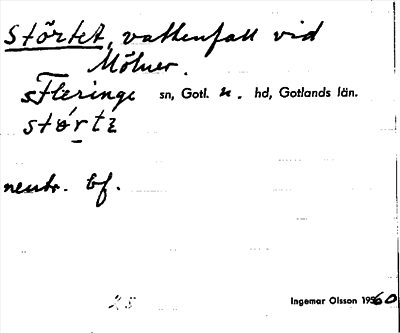 Störtet, vattenfall vid
Mölner.
Fleringe sn, Gotl. n. hd, Gotlands län.
stǿrtɛ
neutr. bf.
Ingemar Olsson 1960